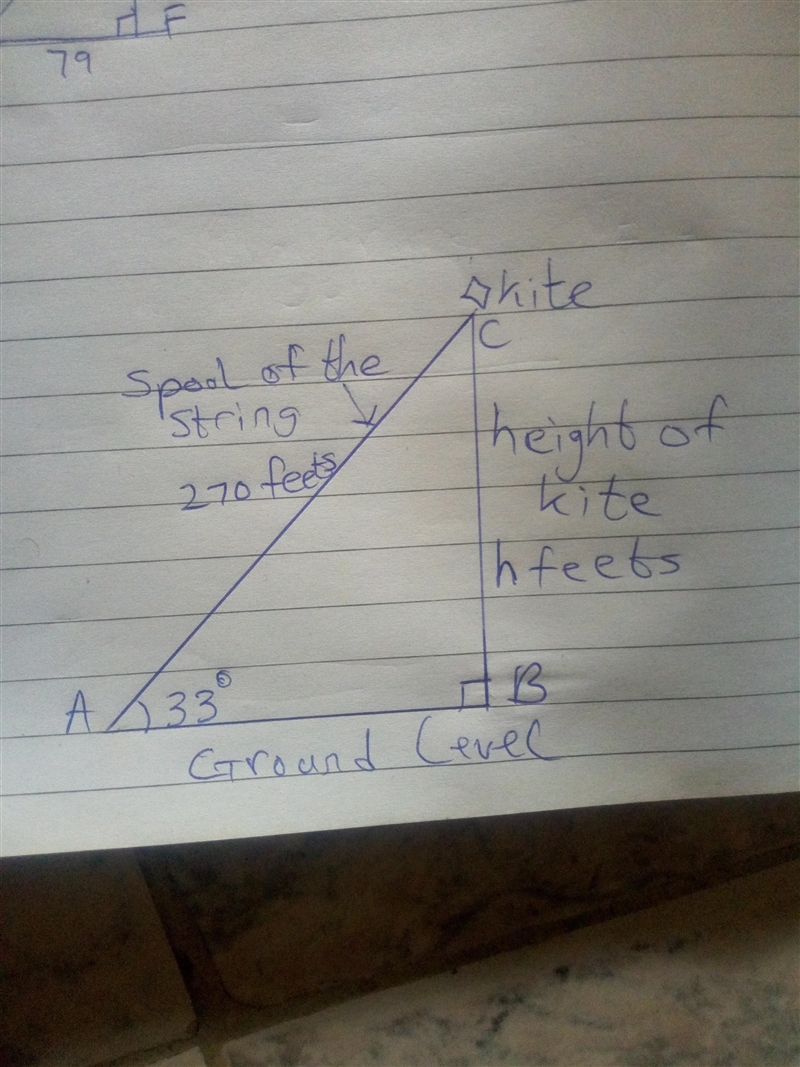 F
79
kite
C
Spool of the
string
270 feets
height of
kite
h feets
A 33°
B
Ground Level